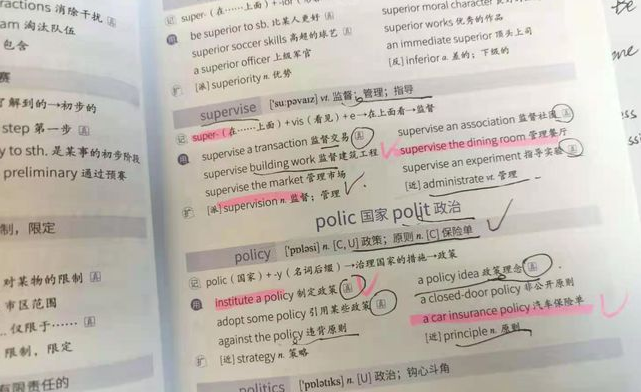 ractions 消除干扰
am 淘汰队伍
包含
赛
了解到的→初步的
step 第一步
y to sth. 是某事的初步阶段
preliminary 通过预赛
制，限定
对某物的限制
市区范围
仅限于……
限制，限定
有限责任的
记 super-（在……上面）+
用 be superior to sb. 比某人更好
superior soccer skills 高超的球艺
a superior officer 上级军官
扩 [派] superiority n. 优势
superior moral character
superior works 优秀的作品
an immediate superior 顶头上司
[反] inferior a. 差的；下级的
supervise ['suːpəvaɪz] vt. 监督；管理；指导
记 super-（在……上面）+ vis（看见）+ e→在上面看→监督
用 supervise a transaction 监督交易
supervise building work 监督建筑工程
supervise the market 管理市场
扩 [派] supervision n. 监督；管理
supervise an association 监督社团
supervise the dining room 管理餐厅
supervise an experiment 指导实验
[近] administrate vt. 管理
polic 国家 polit 政治
policy ['pɒləsi] n. [C, U] 政策；原则 n. [C] 保险单
记 polic（国家）+ y（名词后缀）→治理国家的措施→政策
用 institute a policy 制定政策
adopt some policy 引用某些政策
against the policy 违背原则
扩 [近] strategy n. 策略
a policy idea 政策理念
a closed-door policy 非公开原则
a car insurance policy 汽车保险单
[近] principle n. 原则
politics ['pɒlətɪks] n. [U] 政治；钩心斗角
te
me
ess